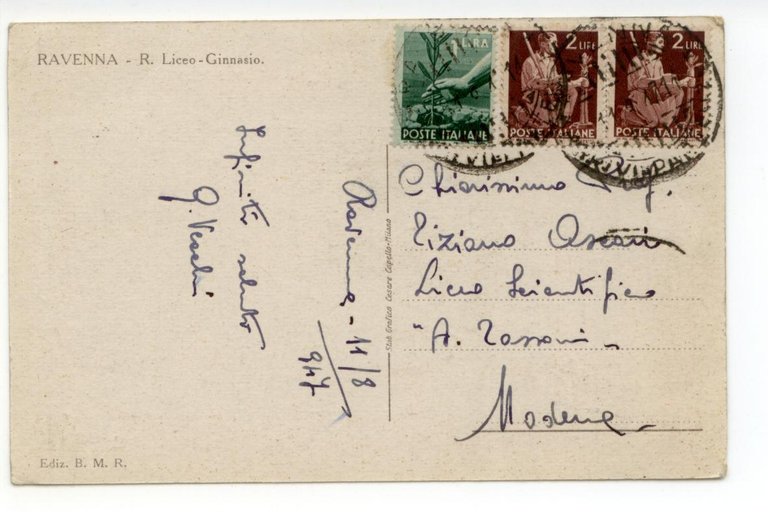 RAVENNA - R. Liceo-Ginnasio.
1 LIRA
POSTE ITALIANE
2 LIRE
POSTE ITALIANE
2 LIRE
POSTE ITALIANE
Infiniti saluti
G. Vecchi
Ravenna - 11/8
947
Stab. Grafico Cesare Capello - Milano
Chiarissimo
Tiziano Ascari
Liceo Scientifico
"A. Tassoni"
Modena
Ediz. B. M. R.